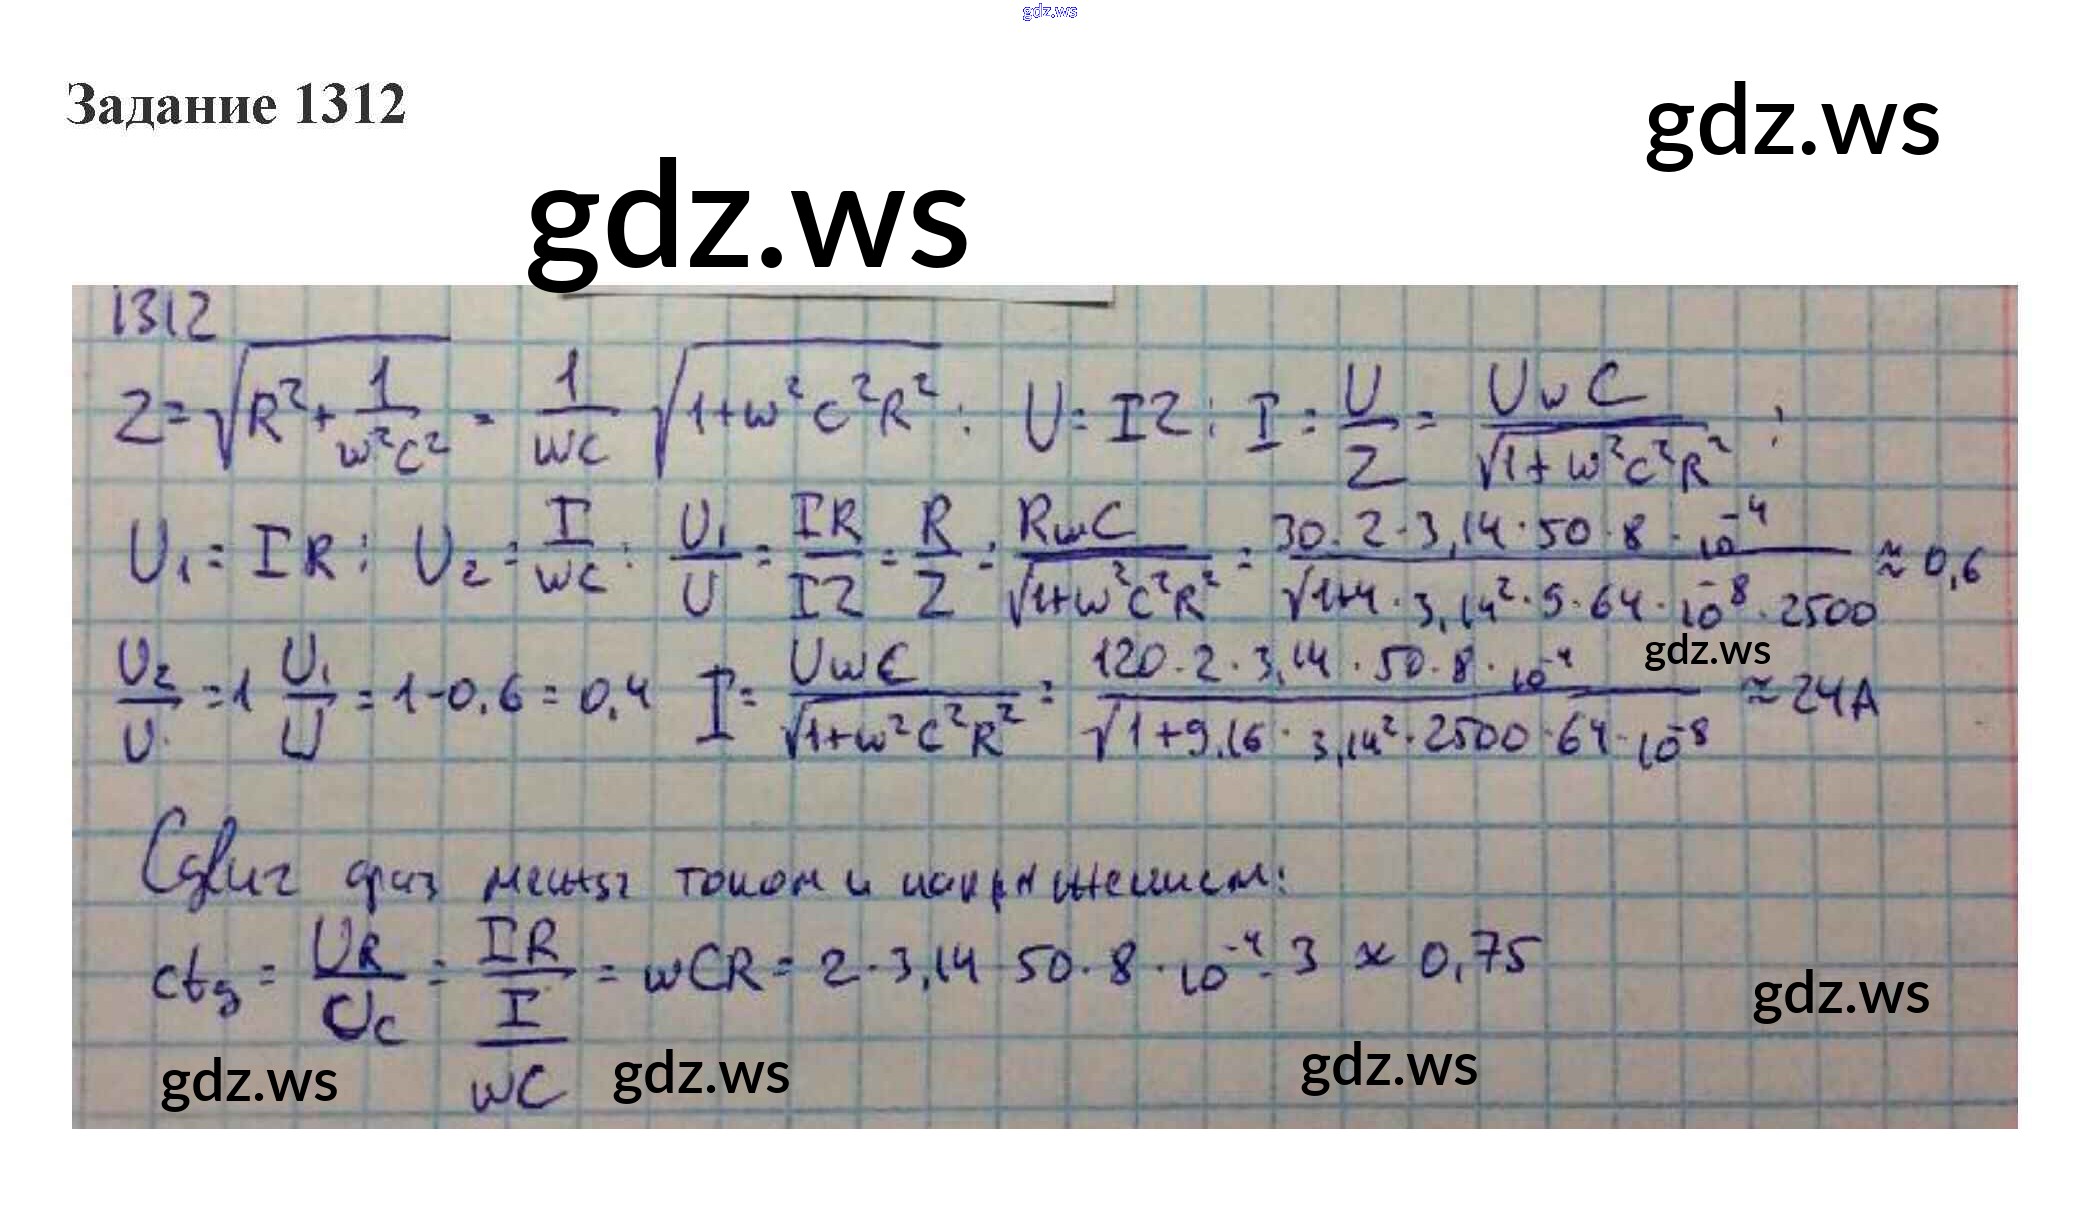 gdz.ws
Задание 1312
gdz.ws
gdz.ws
1312
Z = √(R² + 1/(w²c²)) = 1/(wc) √(1+w²c²R²); U = IZ; I = U/Z = UwC/√(1+w²c²R²);
U₁ = IR; U₂ = I/(wc); U₁/U = IR/IZ = R/Z = RwC/√(1+w²c²R²) = 30·2·3,14·50·8·10⁻⁴/√(1+4·3,14²·9·64·10⁻⁸·2500) ≈ 0,6
U₂/U = 1 U₁/U = 1-0,6 = 0,4 I = UwC/√(1+w²c²R²) = 120·2·3,14·50·8·10⁻⁴/√(1+9,16·3,14²·2500·64·10⁻⁸) ≈ 24A
gdz.ws
Сдвиг фаз между током и напряжением:
ctg = U_R/U_C = IR/(I/wC) = wCR = 2·3,14 50·8·10⁻⁴·3 ≈ 0,75
gdz.ws
gdz.ws gdz.ws gdz.ws